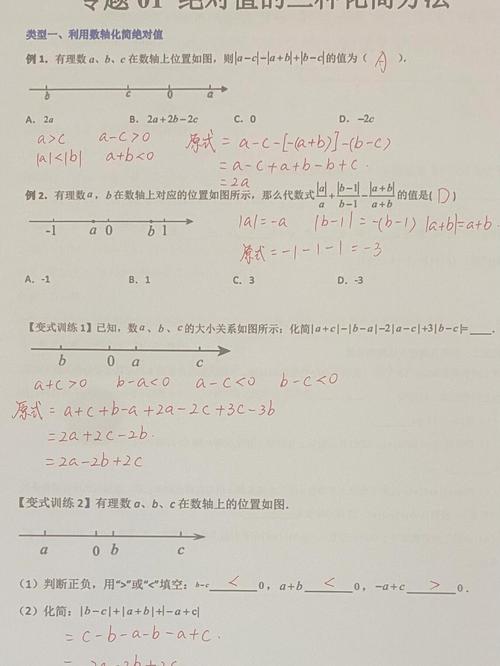 专题 01 绝对值的三种化简方法
类型一、利用数轴化简绝对值
例 1. 有理数 a、b、c 在数轴上位置如图,则|a−c|−|a+b|+|b−c|的值为( A ).
b c 0 a
A. 2a B. 2a+2b−2c C. 0 D. −2c
a>c a−c>0 原式 = a−c−[−(a+b)]−(b−c)
|a|<|b| a+b<0 = a−c+a+b−b+c.
= 2a
例 2. 有理数 a, b 在数轴上对应的位置如图所示,那么代数式 |a|/a + |b−1|/b−1 − |a+b|/a+b 的值是( D )
-1 a 0 b 1
|a|=−a |b−1|=−(b−1) |a+b|=a+b.
原式=−1−1−1=−3
A. -1 B. 1 C. 3 D. -3
【变式训练 1】已知, 数 a、b、c 的大小关系如图所示: 化简|a+c|−|b−a|−2|a−c|+3|b−c|=____.
b 0 a c
a+c>0 b−a<0 a−c<0 b−c<0
原式 = a+c+b−a+2a−2c+3c−3b
=2a+2c−2b.
=2a−2b+2c
【变式训练 2】有理数 a、b、c 在数轴上的位置如图.
a 0 b c
(1) 判断正负, 用“>”或“<”填空: b−c < 0, a+b < 0, −a+c > 0.
(2) 化简: |b−c|+|a+b|+|−a+c|
= c−b−a−b−a+c.
= −2a−2b+2c